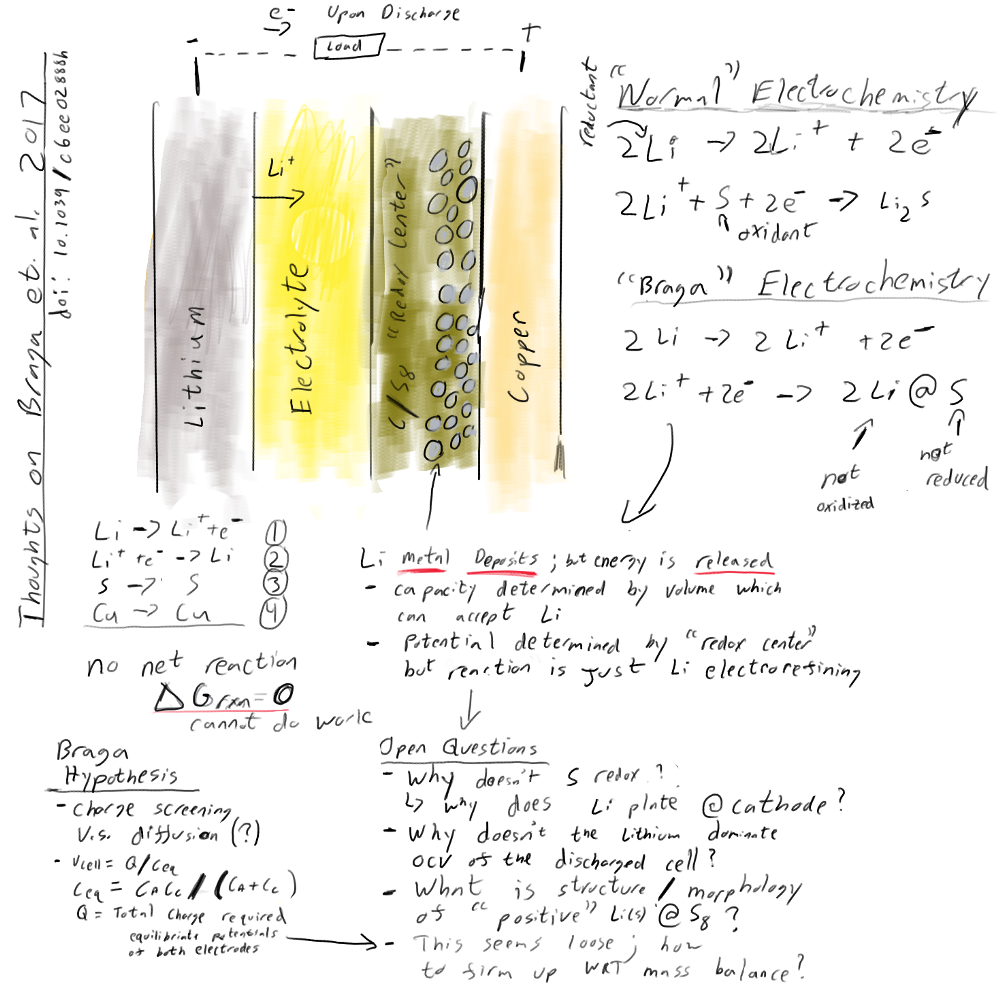 Thoughts on Braga et. al. 2017
doi: 10.1039/c6ee02888h
e⁻ Upon Discharge
→
- Load +
Lithium
Li⁺
→
Electrolyte
C/S8 "Redox Center"
Copper
reductant
"Normal" Electrochemistry
2Li → 2Li⁺ + 2e⁻
2Li⁺ + S + 2e⁻ → Li₂S
oxidant
"Braga" Electrochemistry
2Li → 2Li⁺ + 2e⁻
2Li⁺ + 2e⁻ → 2Li @ S
not
oxidized
not
reduced
Li → Li⁺ + e⁻ ①
Li⁺ + e⁻ → Li ②
S → S ③
Cu → Cu ④
no net reaction
ΔGrxn = 0
cannot do work
Li metal Deposits; but energy is released
- capacity determined by volume which
can accept Li
- Potential determined by "redox center"
but reaction is just Li electrorefining
Braga
Hypothesis
- Charge screening
v.s. diffusion (?)
- Vcell = Q/Ceq
Ceq = CA Cc / (CA + Cc)
Q = Total charge required
equilibriate potentials
of both electrodes
Open Questions
- Why doesn't S redox?
↳ why does Li plate @ cathode?
- Why doesn't the Lithium dominate
OCV of the discharged cell?
- What is structure / morphology
of "positive" Li(s) @ S8?
- This seems loose; how
to firm up WRT mass balance?